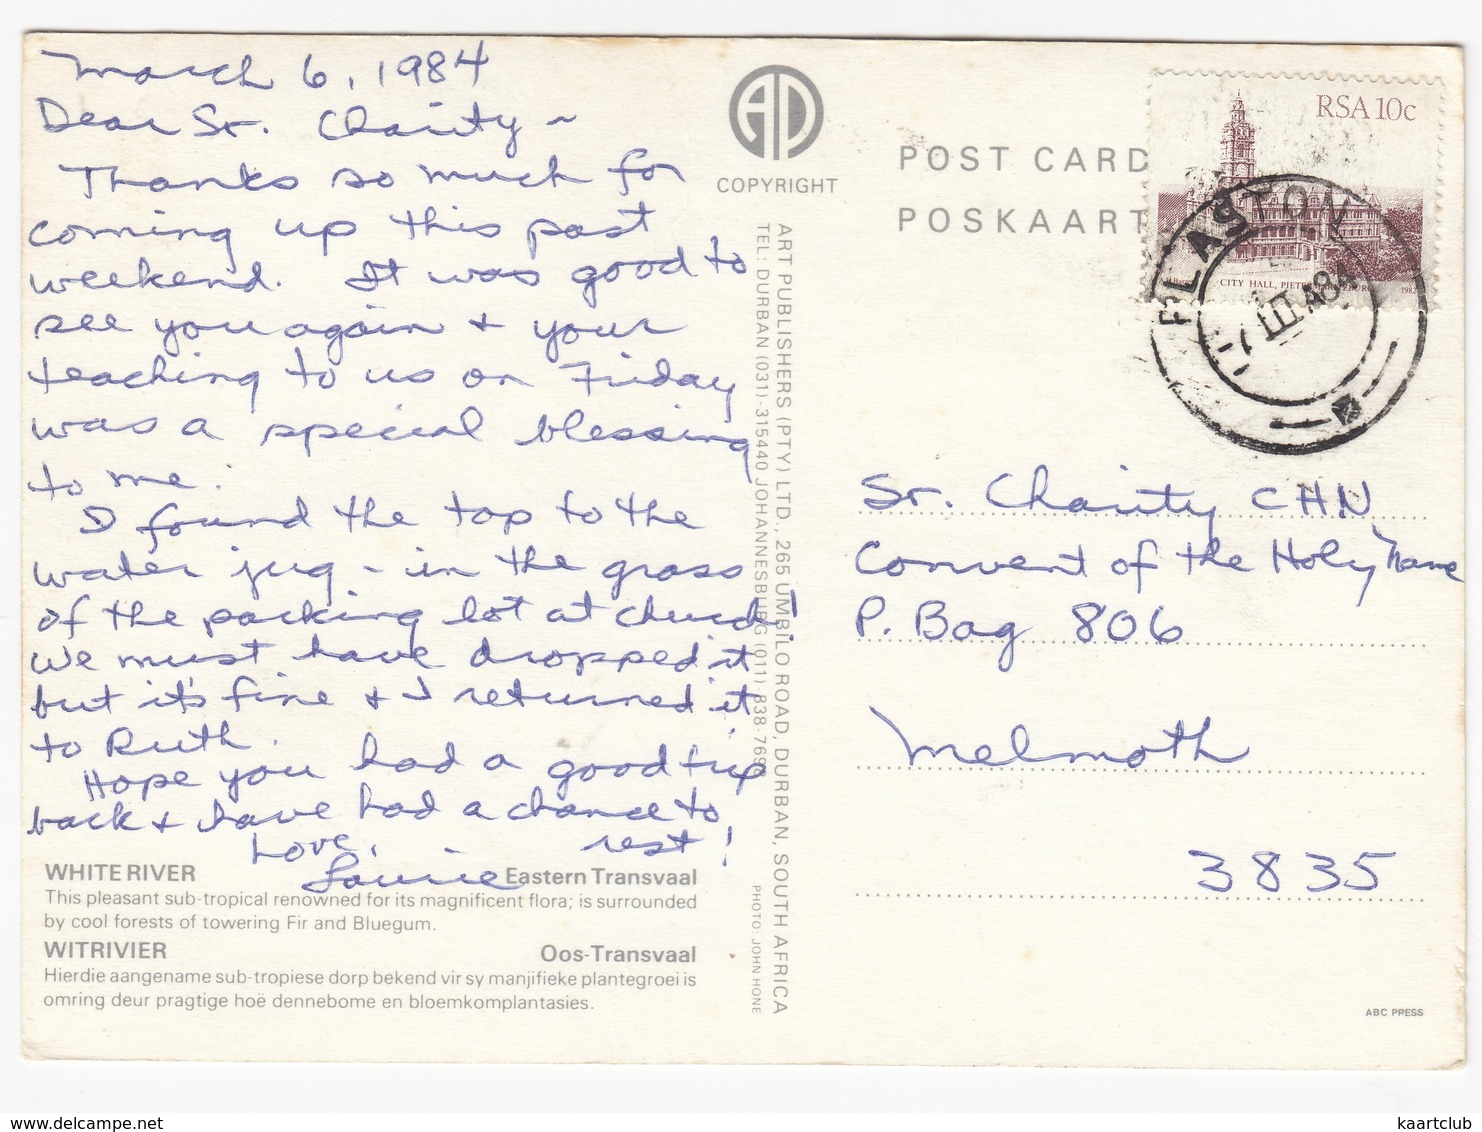 March 6, 1984
Dear Sr. Charity ~
Thanks so much for
coming up this past
weekend. It was good to
see you again + your
teaching to us on Friday
was a special blessing
to me.
I found the top to the
water jug - in the grass
of the parking lot at church.
We must have dropped it
but it's fine + I returned it
to Ruth.
Hope you had a good trip
back + have had a chance to
rest!
Love,
Laurie
WHITE RIVER Eastern Transvaal
This pleasant sub-tropical renowned for its magnificent flora; is surrounded
by cool forests of towering Fir and Bluegum.
WITRIVIER Oos-Transvaal
Hierdie aangename sub-tropiese dorp bekend vir sy manjifieke plantegroei is
omring deur pragtige hoë dennebome en bloemkomplantasies.
COPYRIGHT
ART PUBLISHERS (PTY) LTD., 265 UMBILO ROAD, DURBAN, SOUTH AFRICA
TEL: DURBAN (031)-315440 JOHANNESBURG (011)-838-769
PHOTO: JOHN HONE
POST CARD
POSKAART
RSA 10c
CITY HALL, PIETERMARITZBURG 1982
PLASTON
-7 III A84
Sr. Charity CHN
Convent of the Holy Name
P. Bag 806
Melmoth
3835
ABC PRESS
https://www.delcampe.net
kaartclub